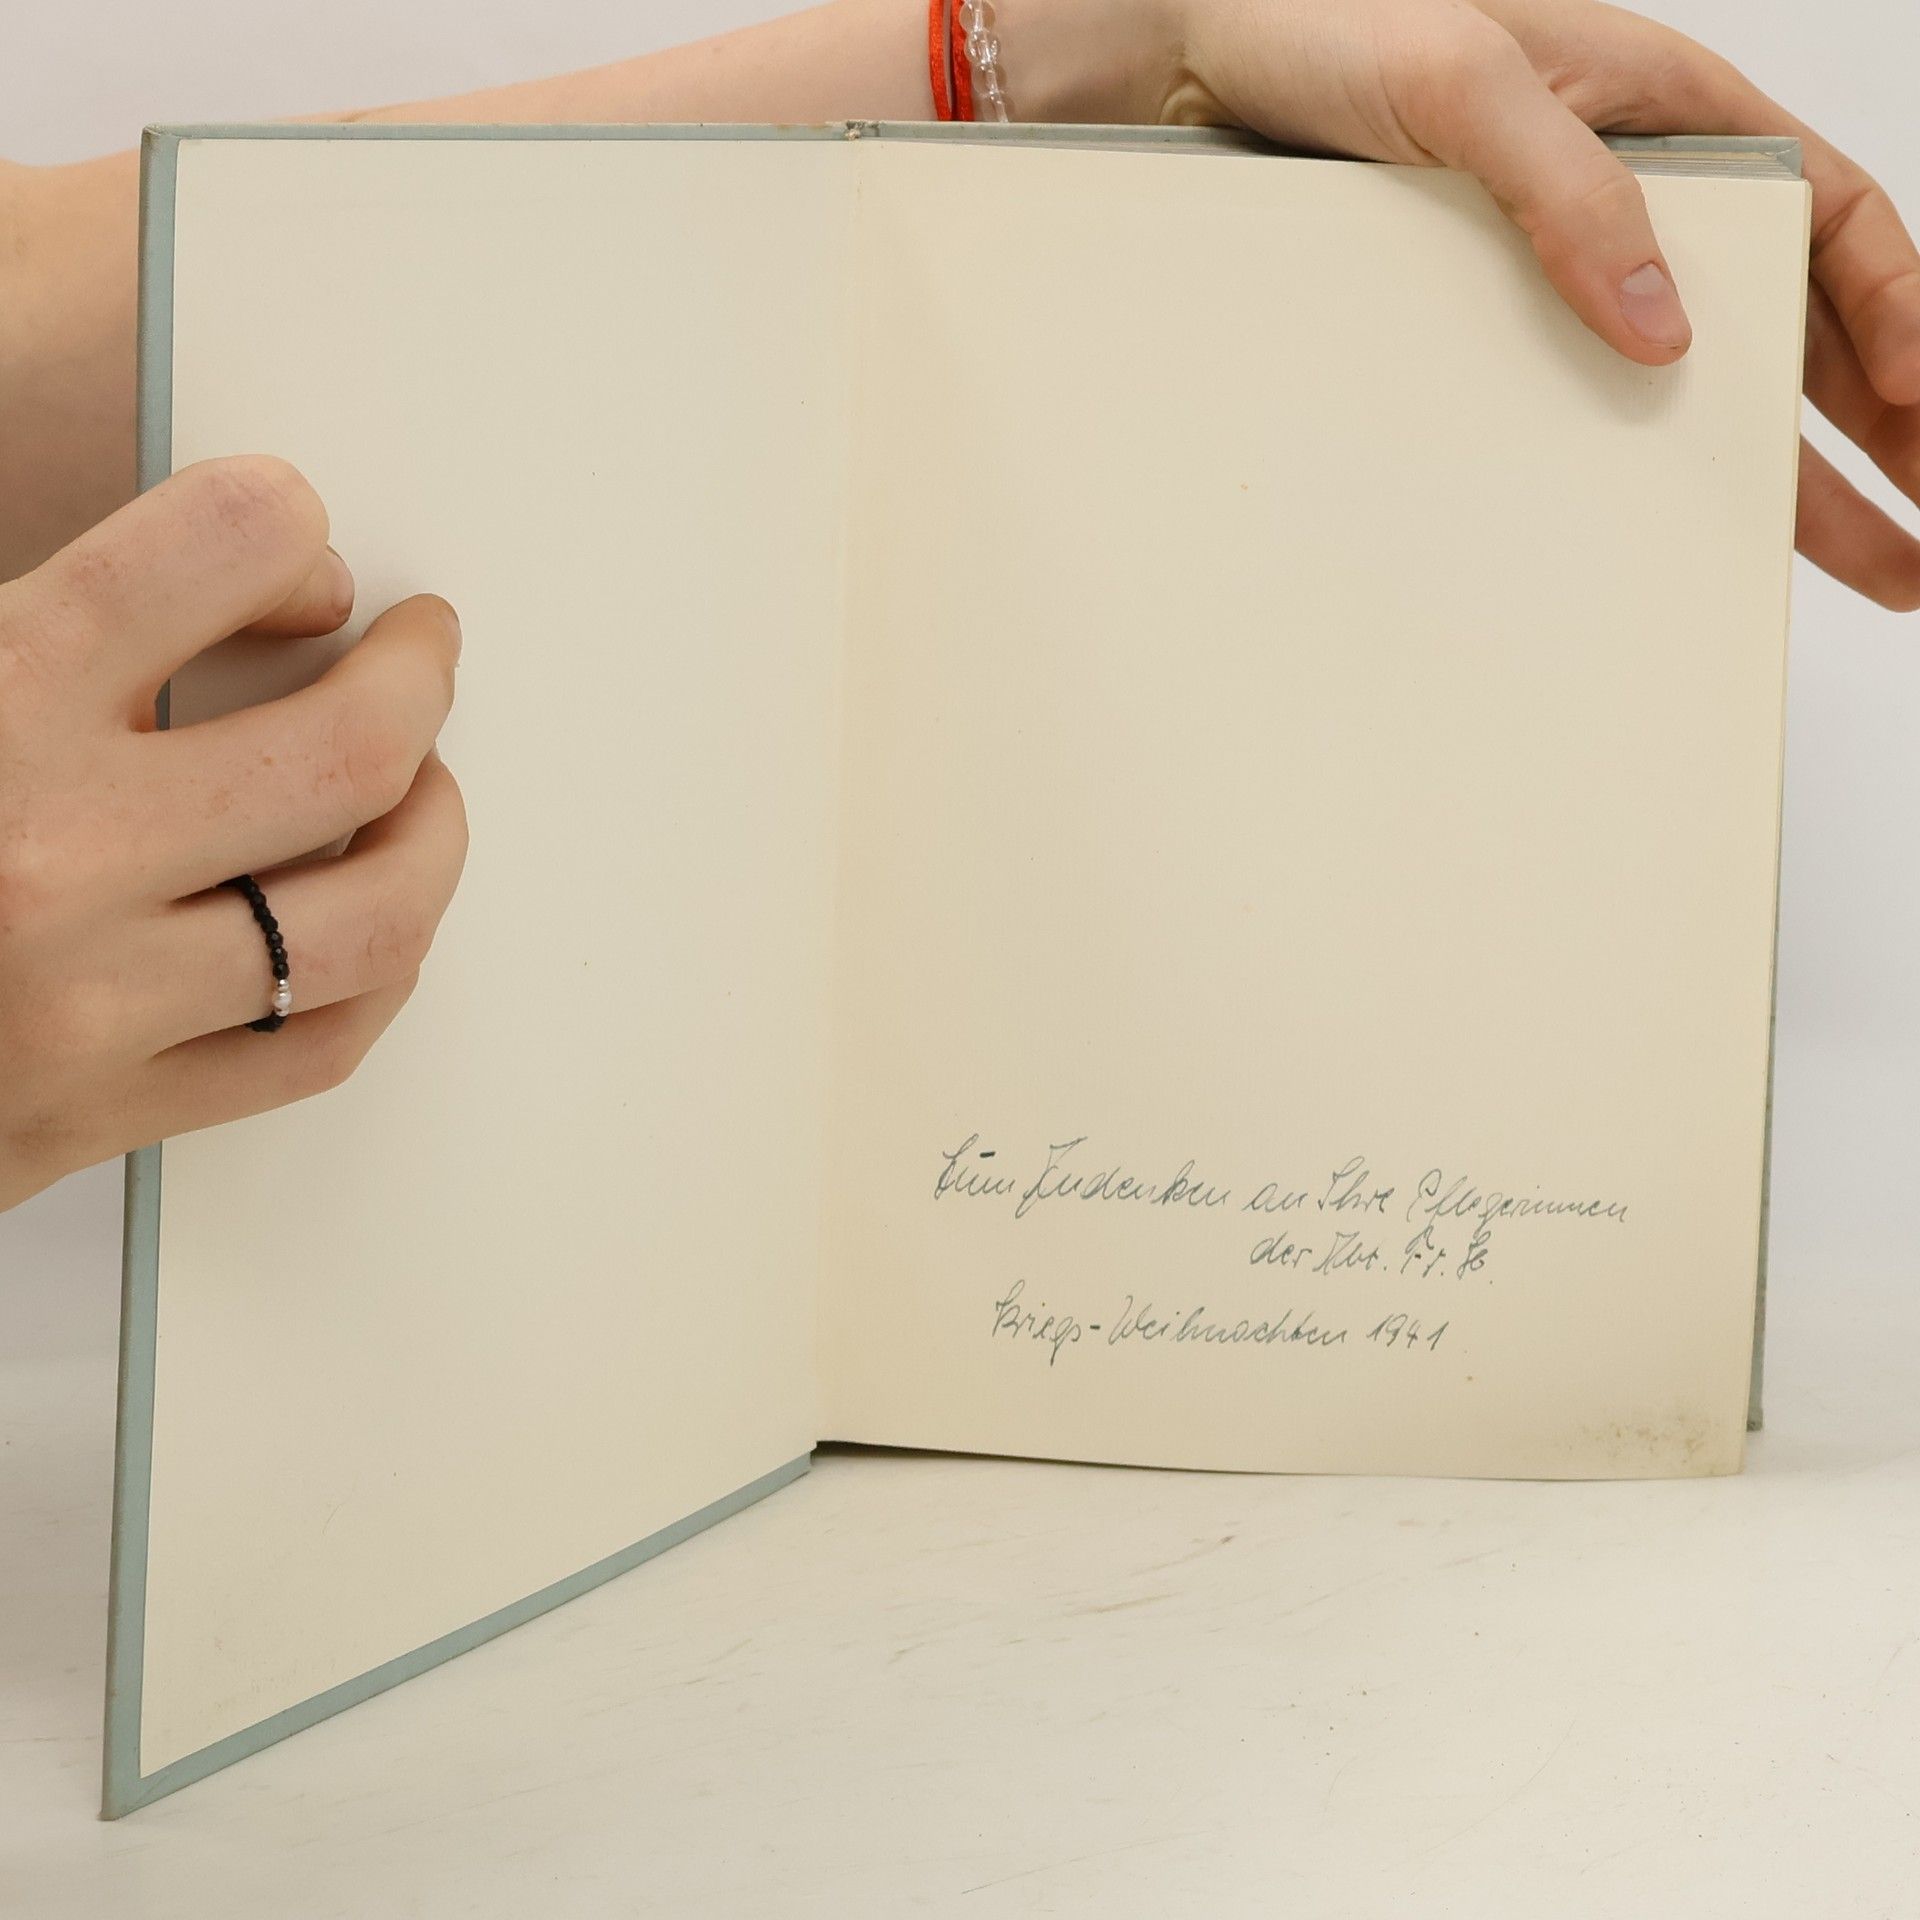 Zum Andenken an Ihre Pflegerinnen
der Abt. Fr. H.
Kriegs-Weihnachten 1941